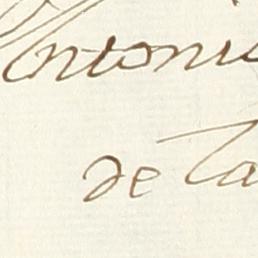 Antoni
de La